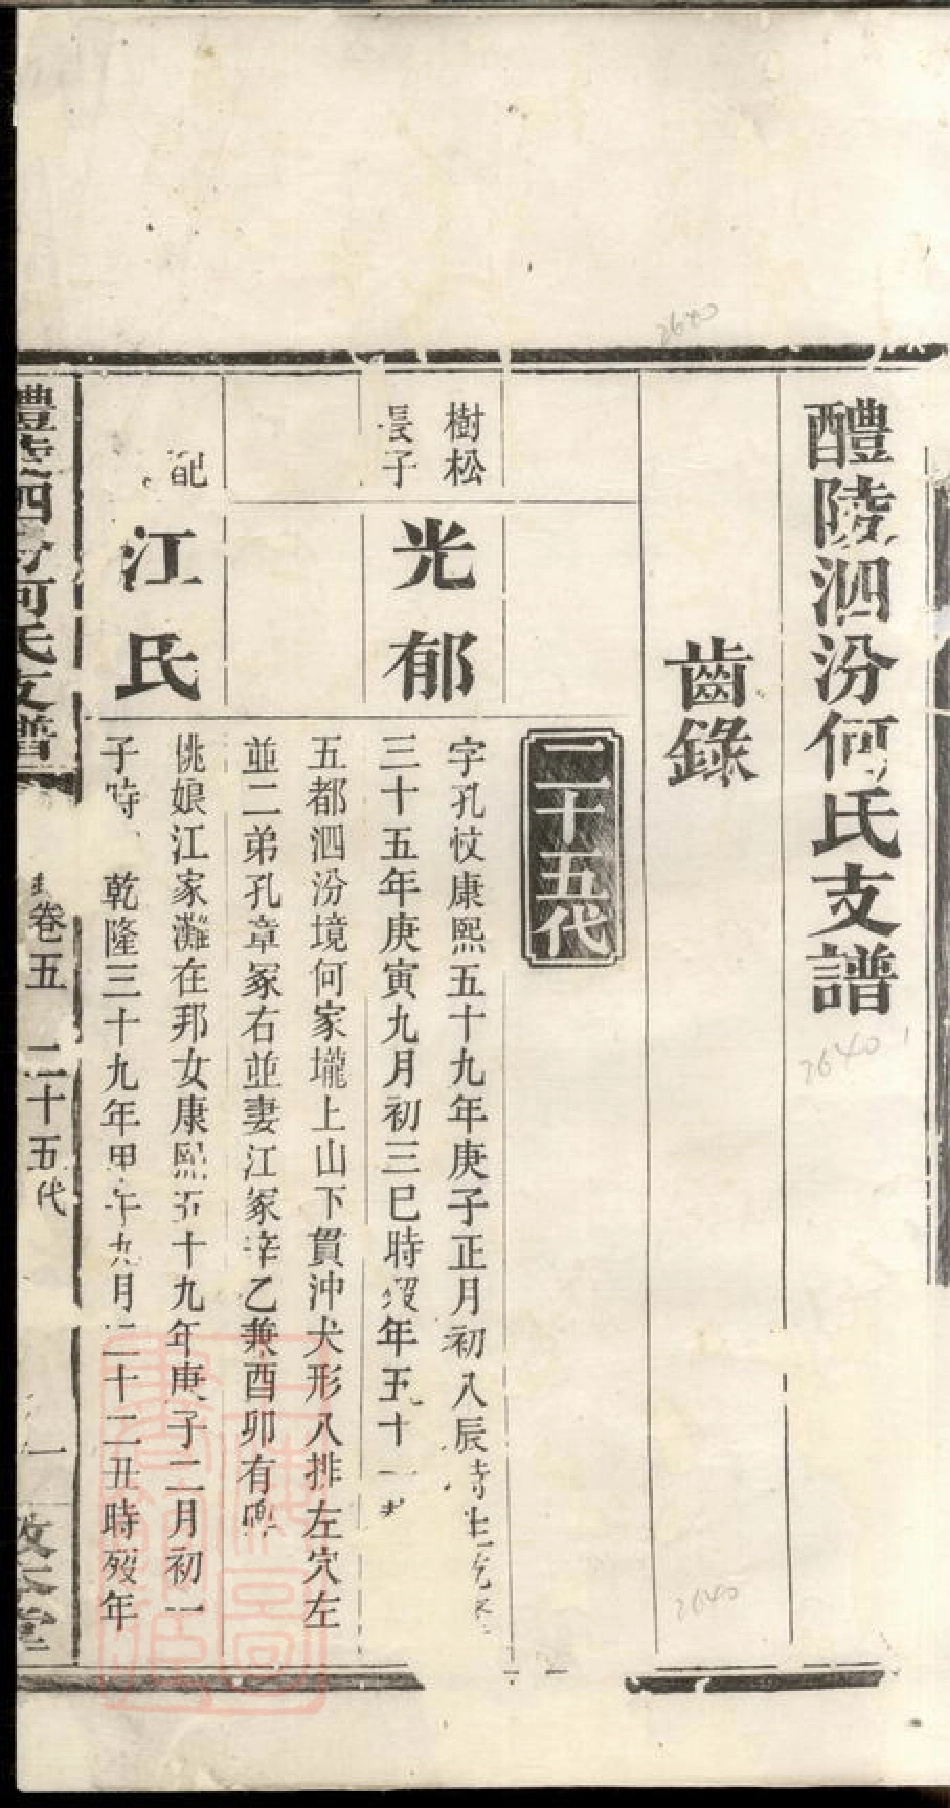 醴陵泗汾何氏支譜
齒錄
二十五代
樹松
長子
光郁
字孔忟康熙五十九年庚子正月初八辰時生乾
三十五年庚寅九月初三巳時歿年五十一
五都泗汾境何家壠上山下貫沖犬形八排左穴左
並二弟孔章冢右並妻江冢辛乙兼酉卯有碑
配
江氏
佻娘江家灘在邦女康熙五十九年庚子二月初一
子時 乾隆三十九年甲午九月二十二丑時歿年
醴陵泗汾何氏支譜
卷五 二十五代
一
敦本堂
7640
7640
7640